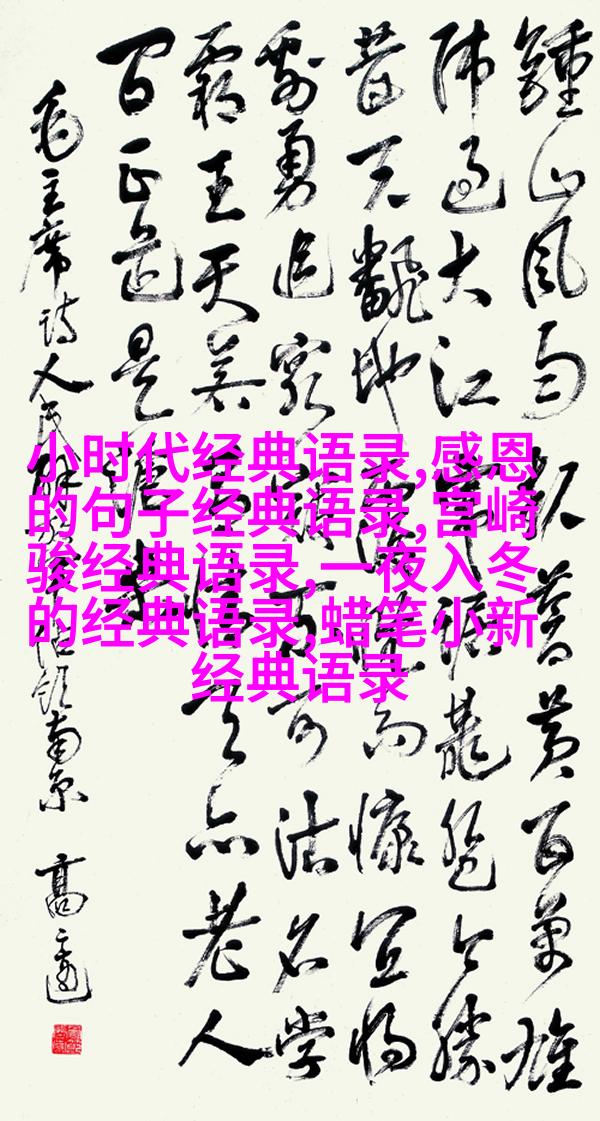 鍾山風雨起蒼黄百萬雄
师过大江踞龍盤今勝
昔天飜地而慷宜将
剩勇追窮可沽名學
霸王天若天亦老人
间正道是
毛主席诗人民解放军占领南京
小时代经典语录,感恩
的句子经典语录,宫崎
骏经典语录,一夜入冬
的经典语录,蜡笔小新
经典语录